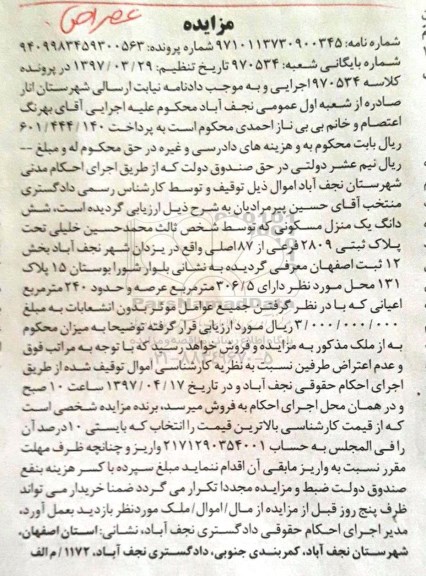 عصر اصفهان
مزایده
شماره نامه: ۹۷۱۰۱۱۳۷۳۰۹۰۰۳۴۵ شماره پرونده: ۹۴۰۹۹۸۳۴۵۹۳۰۰۵۶۳
شماره بایگانی شعبه: ۹۷۰۵۳۴ تاریخ تنظیم: ۱۳۹۷/۰۳/۲۹ در پرونده
کلاسه ۹۷۰۵۳۴ اجرایی و به موجب دادنامه نیابت ارسالی شهرستان انار
صادره از شعبه اول عمومی نجف آباد محکوم علیه اجرایی آقای بهرنگ
اعتصام و خانم بی بی ناز احمدی محکوم است به پرداخت ۶۰۱/۴۴۴/۱۴۰
ریال بابت محکوم به و هزینه های دادرسی و غیره در حق محکوم له و مبلغ --
ریال نیم عشر دولتی در حق صندوق دولت که از طریق اجرای احکام مدنی
شهرستان نجف آباد اموال ذیل توقیف و توسط کارشناس رسمی دادگستری
منتخب آقای حسین پیرمرادیان به شرح ذیل ارزیابی گردیده است، شش
دانگ یک منزل مسکونی که توسط شخص ثالث محمدحسین خلیلی تحت
پلاک ثبتی ۲۸۰۹ فرعی از ۸۷ اصلی واقع در یزدان شهر نجف آباد بخش
۱۲ ثبت اصفهان معرفی گردیده به نشانی بلوار شورا بوستان ۱۵ پلاک
۱۳۱ محل مورد نظر دارای ۳۰۶/۵ مترمربع عرصه و حدود ۲۴۰ مترمربع
اعیانی که با در نظر گرفتن جمیع عوامل موثر بدون انشعابات به مبلغ
۳/۰۰۰/۰۰۰/۰۰۰ ریال مورد ارزیابی قرار گرفته توضیحا به میزان محکوم
به از ملک مذکور به مزایده و فروش خواهد رسید که با توجه به مراتب فوق
و عدم اعتراض طرفین نسبت به نظریه کارشناسی اموال توقیف شده از طریق
اجرای احکام حقوقی نجف آباد و در تاریخ ۱۳۹۷/۰۴/۱۷ ساعت ۱۰ صبح
و در همان محل اجرای احکام به فروش میرسد، برنده مزایده شخصی است
که از قیمت کارشناسی بالاترین قیمت را انتخاب که بایستی ۱۰ درصد آن
را فی المجلس به حساب ۲۱۷۱۲۹۰۳۵۴۰۰۱ واریز و چنانچه ظرف مهلت
مقرر نسبت به واریز مابقی آن اقدام ننماید مبلغ سپرده با کسر هزینه بنفع
صندوق دولت ضبط و مزایده مجددا تکرار می گردد ضمنا خریدار می تواند
ظرف پنج روز قبل از مزایده از مال/اموال/ملک موردنظر بازدید بعمل آورد،
مدیر اجرای احکام حقوقی دادگستری نجف آباد، نشانی: استان اصفهان،
شهرستان نجف آباد، کمربندی جنوبی، دادگستری نجف آباد، ۱۱۷۲/م الف